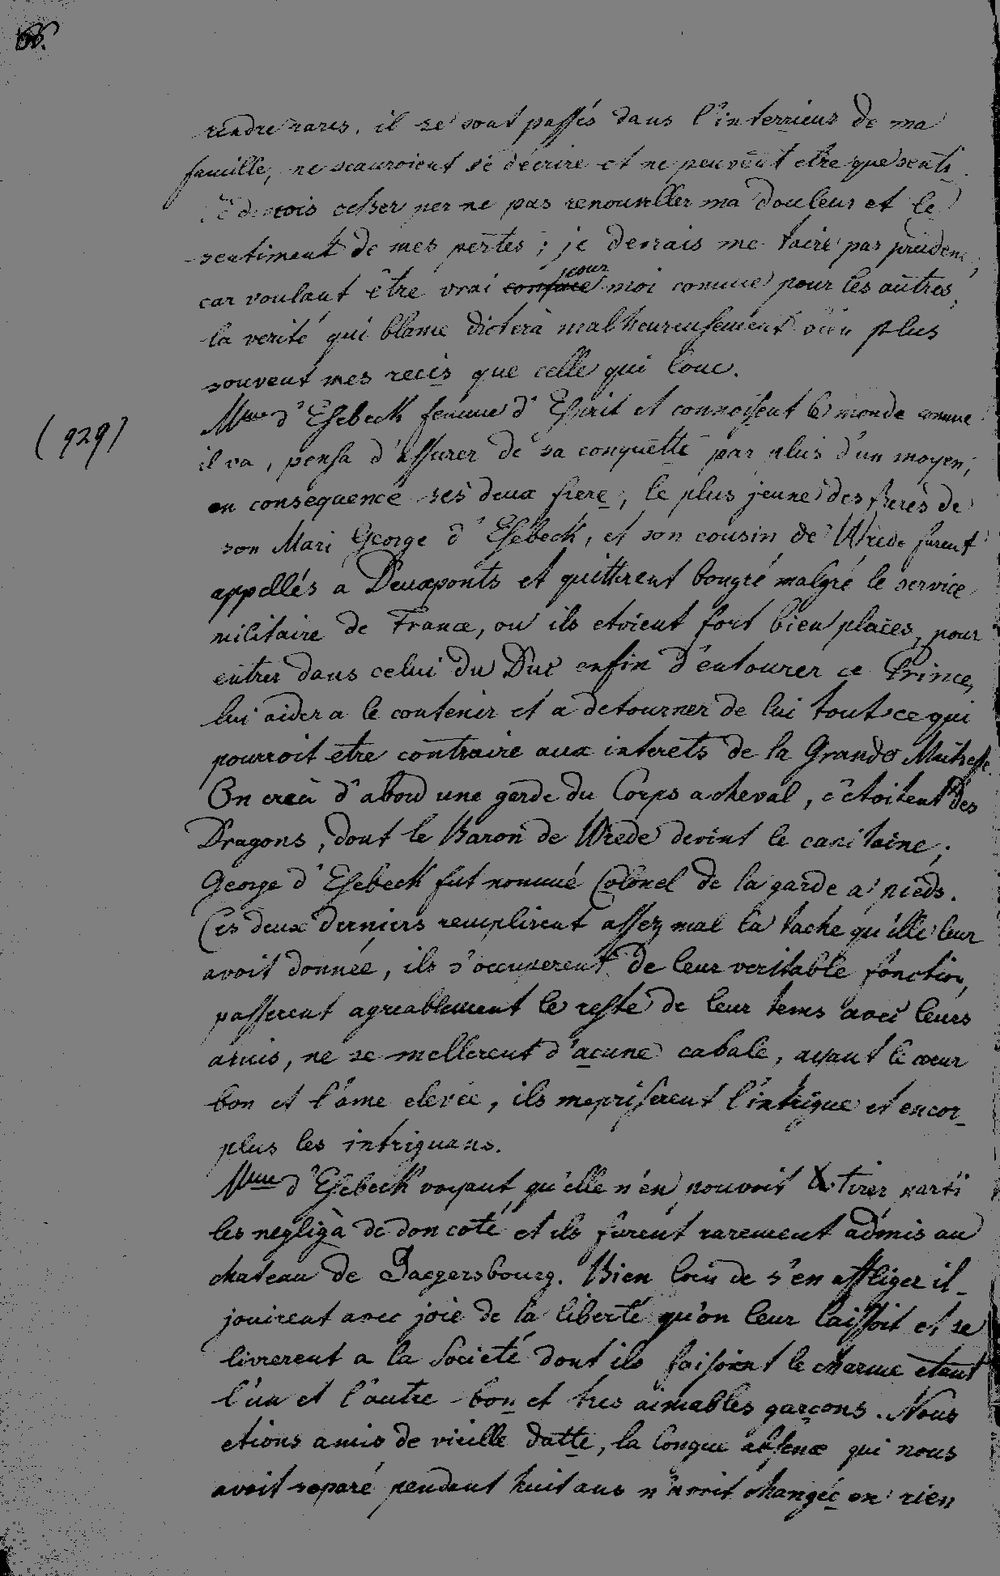 66.
rendre rares. il se sont passés dans l'interrieur de ma
famille, ne scauroient se décrire et ne peuvent etre que senti
devrois cesser per ne pas renouveller ma douleur et le
sentiment de mes pertes ; je devrais me taire par prudence,
car voulant être vrai pour moi comme pour les autres,
la verité qui blame dictera malheureusement bien plus
souvent mes recis que celle qui loue.
(929)
Mme d'Esebeck femme d'Esprit et connoissent le monde comme
il va, pensa d'assurer de sa conquette par plus d'un moyen,
en consequence ses deux frere, le plus jeune des freres de
son Mari George d'Esebeck, et son cousin de Wrede furent
appellés a Deuxponts et quittirent bongré malgré le service
militaire de France, ou ils etoient fort bien placés, pour
entrer dans celui du Duc enfin d'entourer ce Prince,
lui aider a le contenir et a detourner de lui tout ce qui
pourroit etre contraire aux interets de la Grande Maitresse.
On créa d'abord une garde du Corps a cheval, c'étoitent des
Dragons, dont le Baron de Wrede devint le capitaine ;
George d'Esebeck fut nommé Colonel de la garde a pieds.
Ces deux derniers remplirent assez mal la tache qu'elle leur
avoit donnée, ils s'occuperent de leur veritable fonction,
passerent agreablement le reste de leur tems avec leurs
amis, ne se mellerent d'acune cabale, ayant le cœur
bon et l'âme elevée, ils mepriserent l'intrigue et encor
plus les intriguans.
Mme d'Esebeck voyant qu'elle n'en pouvoit tirer parti
les negligà de don coté, et ils furent rarement admis au
chateau de Jaegersbourg. Bien loin de s'en affliger il
jouirent avec joie de la liberté qu'on leur laissoit et se
livrerent a la Societé dont ils faisoient le charme etant
l'un et l'autre bon et tres aimables garçons. Nous
etions amis de vieille datte, la longue absence qui nous
avoit separé pendant huit ans n'avoit changée en rien